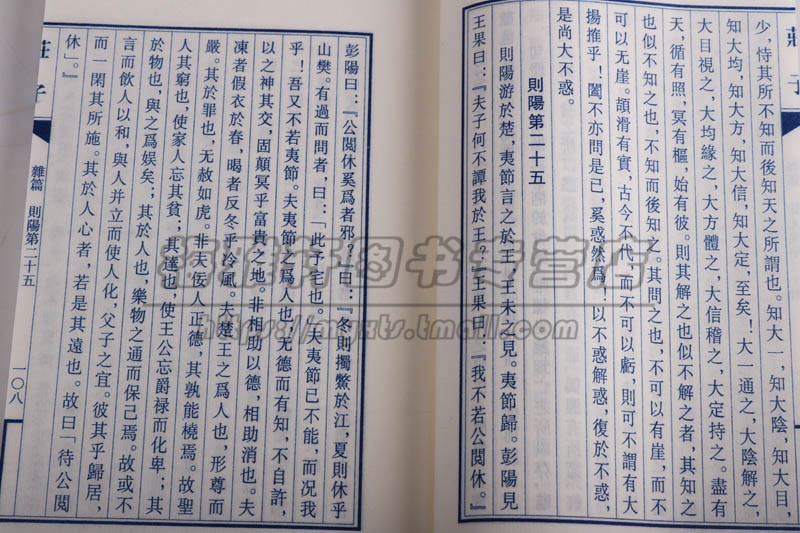 少，恃其所不知而後知天之所謂也。知大一，知大陰，知大目，
知大均，知大方，知大信，知大定，至矣！大一通之，大陰解之，
大目視之，大均緣之，大方體之，大信稽之，大定持之。盡有
天，循有照，冥有樞，始有彼。則其解之也似不解之者，其知之
也似不知之也，不知而後知之。其問之也，不可以有崖，而不
可以无崖。頡滑有實，古今不代，而不可以虧，則可不謂有大
揚搉乎！闔不亦問是已，奚惑然爲！以不惑解惑，復於不惑，
是尚大不惑。
則陽第二十五
則陽游於楚，夷節言之於王，王未之見。夷節歸。彭陽見
王果曰：『夫子何不譚我於王？』王果曰：『我不若公閲休。』
莊子
彭陽曰：『公閲休奚爲者邪？』曰：『冬則擉鱉於江，夏則休乎
山樊。有過而問者，曰：「此予宅也。」夫夷節已不能，而况我
乎！吾又不若夷節。夫夷節之爲人也，无德而有知，不自許，
以之神其交，固顛冥乎富貴之地。非相助以德，相助消也。夫
凍者假衣於春，暍者反冬乎冷風。夫楚王之爲人也，形尊而
嚴。其於罪也，无赦如虎。非夫佞人正德，其孰能橈焉。故聖
人其窮也，使家人忘其貧；其達也，使王公忘爵禄而化卑；其
於物也，與之爲娱矣；其於人也，樂物之通而保己焉。故或不
言而飲人以和，與人并立而使人化，父子之宜。彼其乎歸居，
而一閑其所施。其於人心者，若是其遠也。故曰「待公閲
休」。』
莊子
雜篇　則陽第二十五
一〇八
https://mgxts.tmall.com